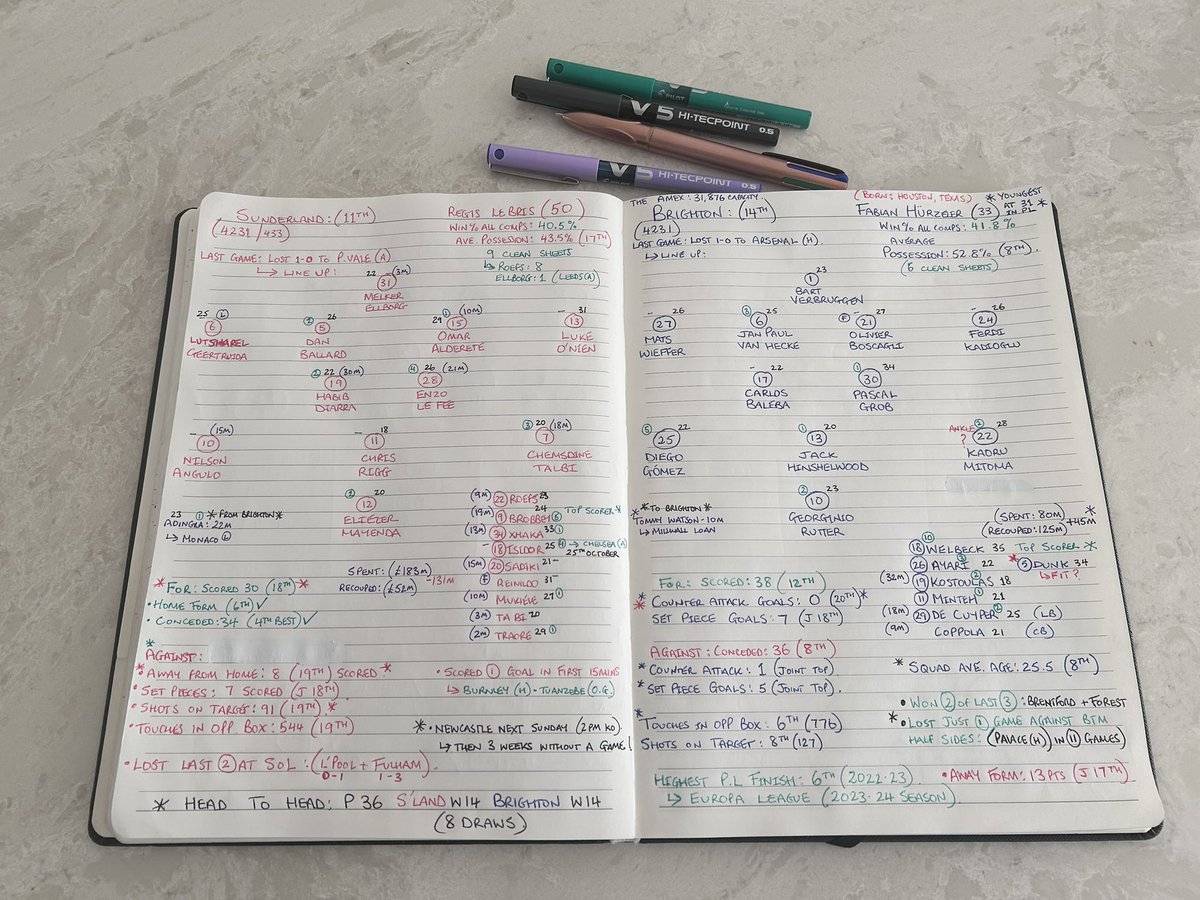 PILOT
V5 HI-TECPOINT 0.5
V5 HI-TECPOINT 0.5
SUNDERLAND: (11TH)
(4231/433)
REGIS LE BRIS (50)
WIN% ALL COMPS: 40.5%
AVE. POSSESSION: 43.5% (17TH)
LAST GAME: LOST 1-0 TO P.VALE (A)
↳ LINE UP:
9 CLEAN SHEETS
↳ ROEFS: 8
ELLBORG: 1 (LEEDS(A)
22 (3M)
31
MELKER
ELLBORG
25 (L)
6
LUTSHAREL
GEERTRUIDA
2 26
5
DAN
BALLARD
29 1 (10M)
15
OMAR
ALDERETE
- 31
13
LUKE
O'NIEN
2 22 (30M)
19
HABIB
DIARRA
4 26 (21M)
28
ENZO
LE FEE
- (15M)
10
NILSON
ANGULO
- 18
11
CHRIS
RIGG
3 20 (18M)
7
CHEMSDINE
TALBI
2 20
12
ELIEZER
MAYENDA
23 1 * FROM BRIGHTON *
ADINGRA: 22M
↳ MONACO (L)
(9M) 22 ROEFS 23
(19M) 9 BROBBEY 24 5 TOP SCORER *
(13M) 34 XHAKA 33 1
- 18 ISIDOR 25 4 → CHELSEA (A)
25TH OCTOBER
(15M) 20 SADIKI 21 -
(F) REINILDO 31 -
(10M) MUKIELE 27 1
(3M) TA BI 20
(2M) TRAORE 29 1
SPENT: (£183M)
RECOUPED: (£52M) -131M
* FOR: SCORED 30 (18TH) *
• HOME FORM (6TH) ✓
• CONCEDED: 34 (4TH BEST) ✓
* AGAINST:
* • AWAY FROM HOME: 8 (19TH) SCORED *
* • SET PIECES: 7 SCORED (J 18TH)
* • SHOTS ON TARGET: 91 (19TH) *
* • TOUCHES IN OPP BOX: 544 (19TH)
• SCORED 1 GOAL IN FIRST 15MINS
↳ BURNLEY (H) - TUANZEBE (O.G)
* • NEWCASTLE NEXT SUNDAY (2PM KO)
↳ THEN 3 WEEKS WITHOUT A GAME!
• LOST LAST 2 AT SOL: (L'POOL + FULHAM)
0-1 1-3
* HEAD TO HEAD: P 36 S'LAND W14 BRIGHTON W14
(8 DRAWS)
THE AMEX: 31,876 CAPACITY
BRIGHTON: (14TH)
(4231)
(BORN: HOUSTON, TEXAS)
FABIAN HÜRZELER (33)
* YOUNGEST
AT 31
IN PL *
WIN% ALL COMPS: 41.8%
AVERAGE
POSSESSION: 52.8% (8TH).
(6 CLEAN SHEETS)
LAST GAME: LOST 1-0 TO ARSENAL (H).
↳ LINE UP:
23
1
BART
VERBRUGGEN
- 26
27
MATS
WIEFFER
3 25
6
JAN PAUL
VAN HECKE
(F) 27
21
OLIVIER
BOSCAGLI
- 26
24
FERDI
KADIOGLU
- 22
17
CARLOS
BALEBA
1 34
30
PASCAL
GROB
5 22
25
DIEGO
GÓMEZ
1 20
13
JACK
HINSHELWOOD
ANKLE ? 2 28
22
KAORU
MITOMA
2 23
10
GEORGINIO
RUTTER
* TO BRIGHTON *
TOMMY WATSON - 10M
↳ MILLWALL LOAN
(SPENT: 80M)
(RECOUPED: 125M) +45M *
10
18 WELBECK 35 TOP SCORER *
26 AYARI 22
* 5 DUNK 34
↳ FIT?
(32M) 19 KOSTOULAS 18
11 MINTEH 21
(18M) 29 DE CUYPER 25 (LB)
(9M) COPPOLA 21 (CB)
FOR: SCORED: 38 (12TH)
* COUNTER ATTACK GOALS: 0 (20TH) *
* SET PIECE GOALS: 7 (J 18TH)
AGAINST: CONCEDED: 36 (8TH)
* COUNTER ATTACK: 1 (JOINT TOP)
* SET PIECE GOALS: 5 (JOINT TOP).
* SQUAD AVE. AGE: 25.5 (8TH)
* TOUCHES IN OPP BOX: 6TH (776)
SHOTS ON TARGET: 8TH (127)
• WON 2 OF LAST 3: BRENTFORD + FOREST
* • LOST JUST 1 GAME AGAINST BTM
HALF SIDES: (PALACE (H)) IN 11 GAMES)
HIGHEST P.L FINISH: 6TH (2022-23)
↳ EUROPA LEAGUE (2023-24 SEASON).
• AWAY FORM: 13 PTS (J 17TH)